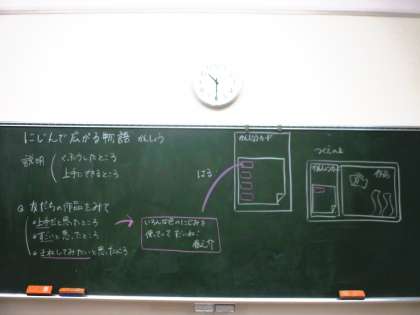 にじんで広がる物語 かんしょう
説明
くふうしたところ
上手にできたところ
◎ 友だちの作品をみて
・上手だと思ったところ
・すごいと思ったところ
・まねしてみたいと思ったところ
いろんな色のにじみを
使っていて すごいね!
はる
かんしょうカード
つくえの上
かんしょうカード
作品